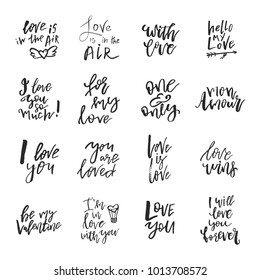 love is
in the air
Love
is in the
AIR
with
love
hello
my
Love
I love
you
so
much!
for
my
love
one
&
only
mon
Amour
I love
you
you
are
loved
love
is
love
love
wins
be my
valentine
I'm
in
love
with you
Love
you
I will
love
you
forever
shutterstock.com · 1013708572